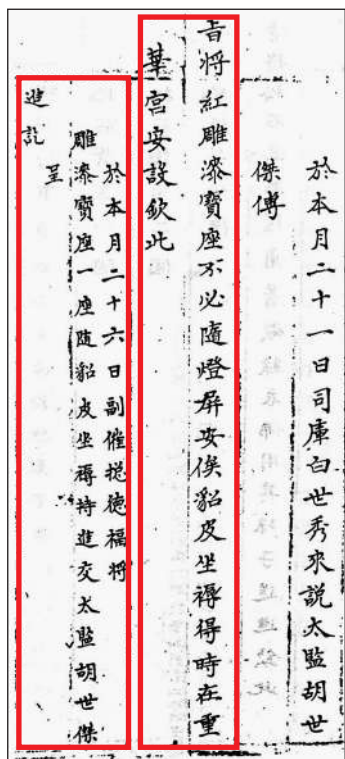 於本月二十一日司庫白世秀來說太監胡世
傑傳
旨將紅雕漆寳座不必隨燈屏安俟貂皮坐褥得時在重
華宮安設欽此
於本月二十六日副催総德福將
雕漆寳座一座隨貂皮坐褥持進交太監胡世傑
呈
進訖